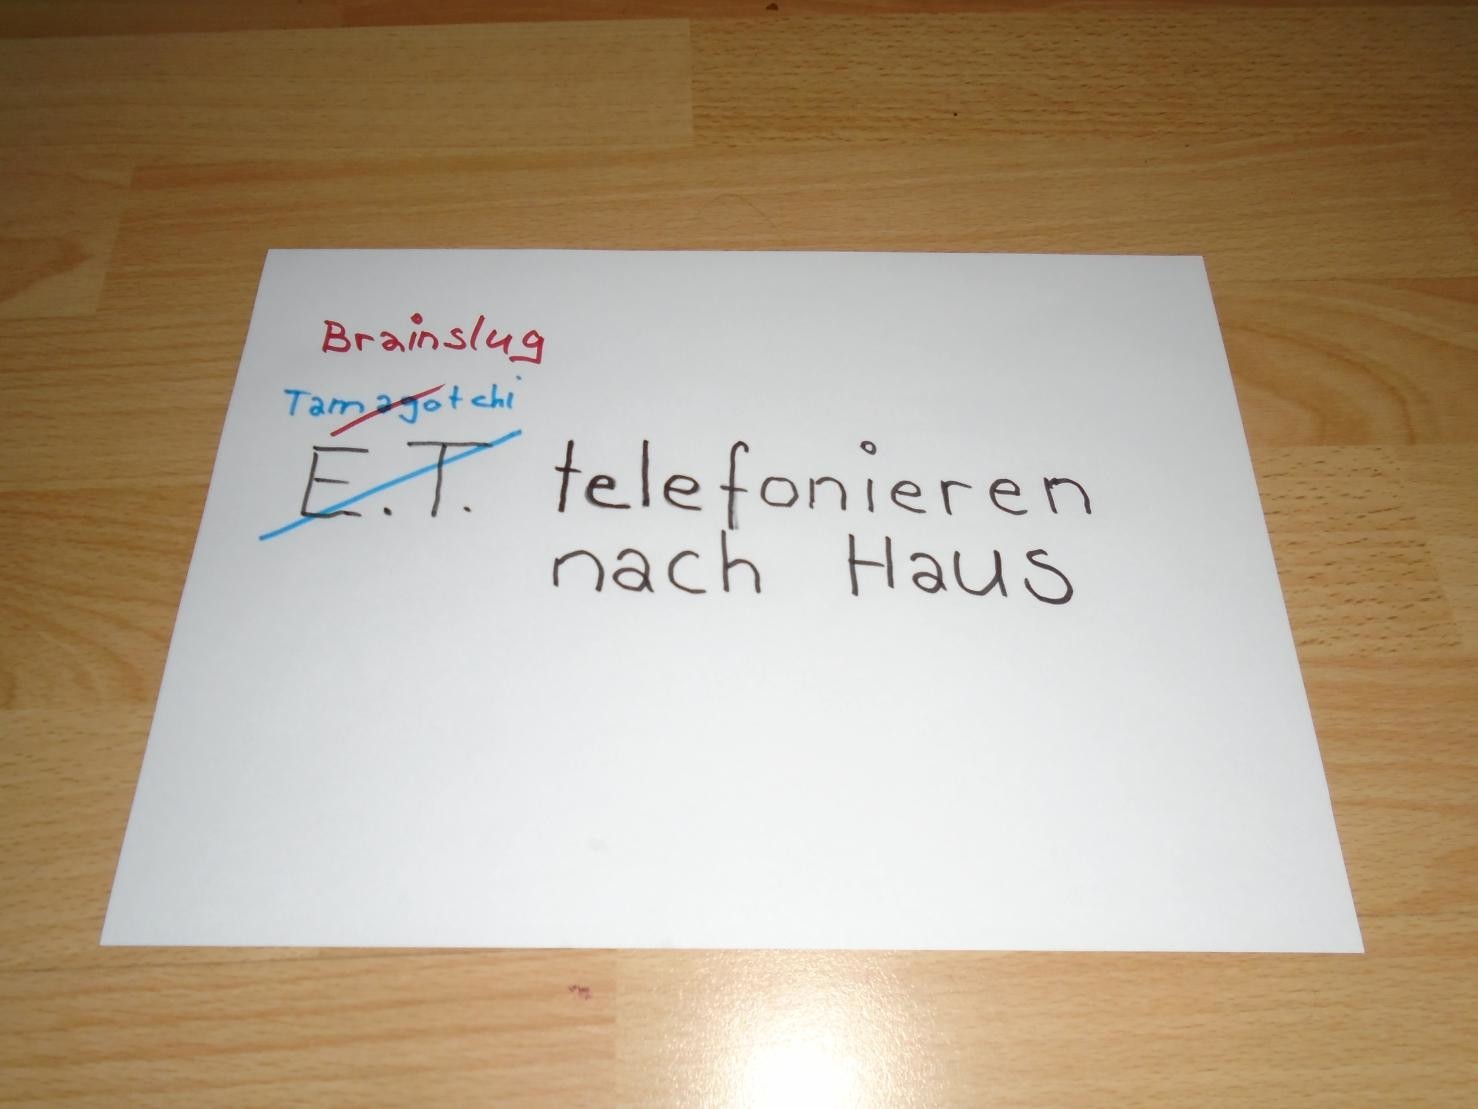 Brainslug
Tamagotchi
E.T. telefonieren
nach Haus